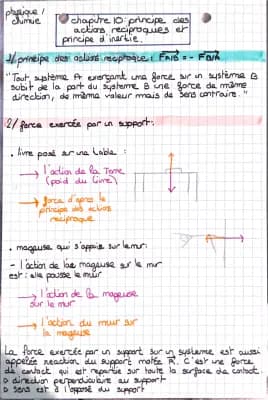 physique/
chimie
chapitre 10: principe des
actions réciproques et
principe d'inertie.
1/ principe des actions réciproque: FA/B = - FB/A
"Tout système A exerçant une force sur un système B
subit de la part du système B une force de même
direction, de même valeur mais de sens contraire."
2/ force exercée par un support:
. livre posé sur une table:
→ l'action de la Terre
(poid du livre)
→ force d'après le
principe des actions
réciproque
. mageuse qui s'appuie sur le mur:
- l'action de la mageuse sur le mur
est: elle pousse le mur
→ l'action de la mageuse
sur le mur
→ l'action du mur sur
la mageuse
La force exercée par un support sur un systeme est aussi
appelée reaction du support notée R. C'est une force
de contact qui est repartie sur toute la surface de contact.
direction perpendiculaire au support
sens est à l'opposé du support